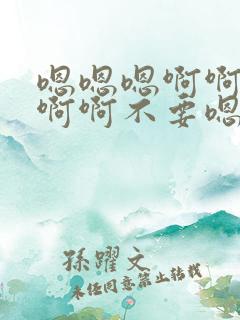 嗯嗯嗯啊啊
啊啊不要嗯
孫躍文
未经同意禁止转载